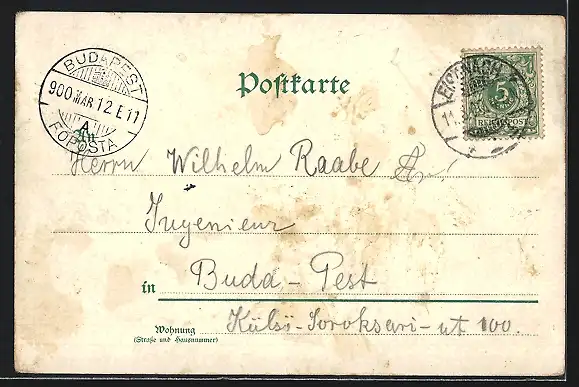 BUDAPEST
900 MAR 12 E 11
A
FŐPOSTA
EISENACH
11.
5
REICHSPOST
Postkarte
An
Herrn Wilhelm Raabe
Ingenieur
in Buda-Pest
Wohnung
(Straße und Hausnummer)
Külsö-Soroksari-ut 100.